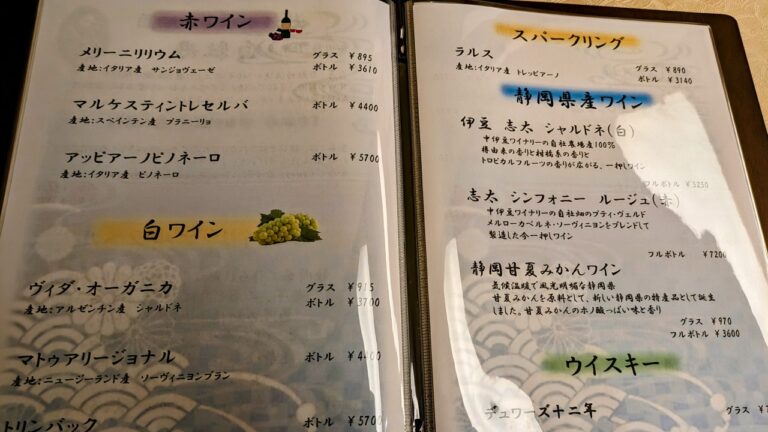 赤ワイン
メリーニリリウム グラス ¥895
産地:イタリア産 サンジョヴェーゼ ボトル ¥3610
マルケスティントレセルバ ボトル ¥4400
産地:スペインテン産 プラニーリョ
アッピアーノピノネーロ ボトル ¥5700
産地:イタリア産 ピノネーロ
白ワイン
ヴィダ・オーガニカ グラス ¥915
産地:アルゼンチン産 シャルドネ ボトル ¥3700
マトゥアリージョナル ボトル ¥4400
産地:ニュージーランド産 ソーヴィニヨンブラン
トリンバック ボトル ¥5700
スパークリング
ラルス グラス ¥890
産地:イタリア産 トレッビアーノ ボトル ¥3140
静岡県産ワイン
伊豆 志太 シャルドネ(白)
中伊豆ワイナリーの自社農場産100%
樽由来の香りと柑橘系の香りと
トロピカルフルーツの香りが広がる、一押しワイン
フルボトル ¥5250
志太 シンフォニー ルージュ(赤)
中伊豆ワイナリーの自社畑のプティ・ヴェルド
メルローカベルネ・ソーヴィニヨンをブレンドして
製造した今一押しワイン
フルボトル ¥7200
静岡甘夏みかんワイン
気候温暖で風光明媚な静岡県
甘夏みかんを原料として、新しい静岡県の特産品として誕生
しました。甘夏みかんのホノ酸っぱい味と香り
グラス ¥970
フルボトル ¥3600
ウイスキー
デュワーズ十二年